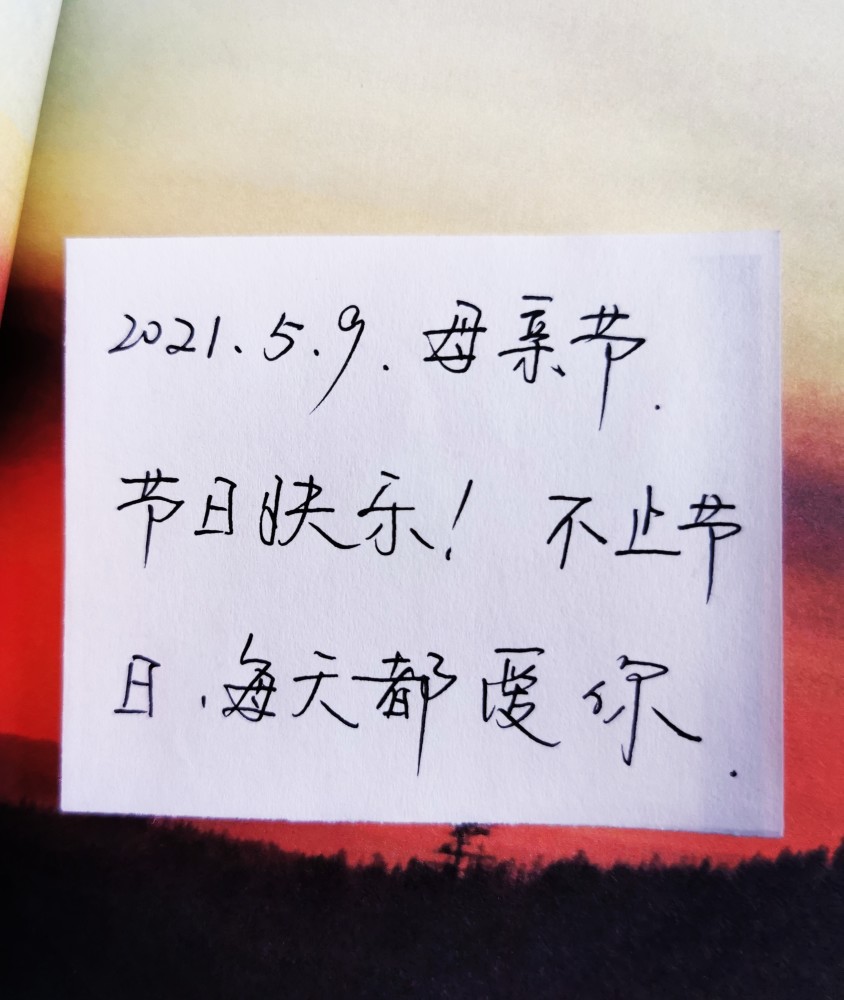 2021.5.9.母亲节.
节日快乐！不止节
日.每天都爱你.